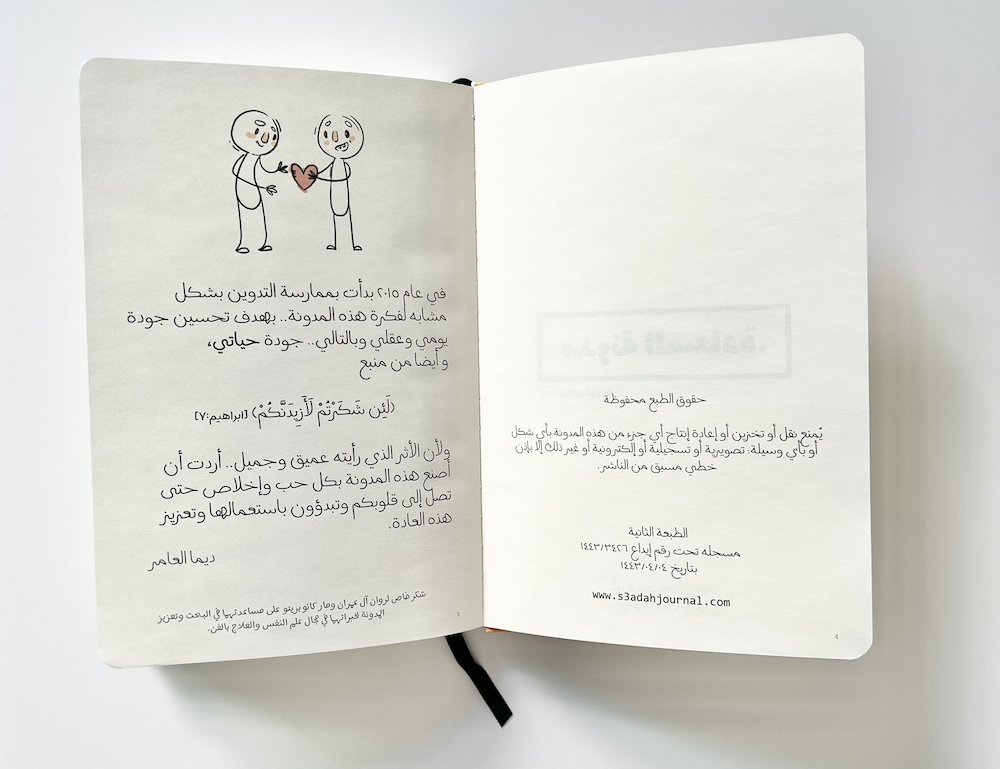 حقوق الطبع محفوظة
يُمنع نقل أو تخزين أو إعادة إنتاج أي جزء من هذه المدونة بأي شكل
أو بأي وسيلة، تصويرية أو تسجيلية أو إلكترونية أو غير ذلك إلا بإذن
خطي مسبق من الناشر.
الطبعة الثانية
مسجله تحت رقم إيداع ١٤٤٣/٣٤٢٦
بتاريخ ١٤٤٣/٠٤/٠٤
www.s3adahjournal.com
4
في عام ٢٠١٥ بدأت بممارسة التدوين بشكل
مشابه لفكرة هذه المدونة.. بهدف تحسين جودة
يومي وعقلي وبالتالي.. جودة حياتي،
وأيضا من منبع
(لَئِن شَكَرْتُمْ لَأَزِيدَنَّكُمْ) [ابراهيم:٧]
ولأن الأثر الذي رأيته عميق وجميل.. أردت أن
أصنع هذه المدونة بكل حب وإخلاص حتى
تصل إلى قلوبكم وتبدؤون باستعمالها وتعزيز
هذه العادة.
ديما العامر
شكر خاص لروان آل عميران ومار كانو بريتو على مساعدتهما في البحث وتعزيز
المدونة بخبراتهما في مجال علم النفس والعلاج بالفن.